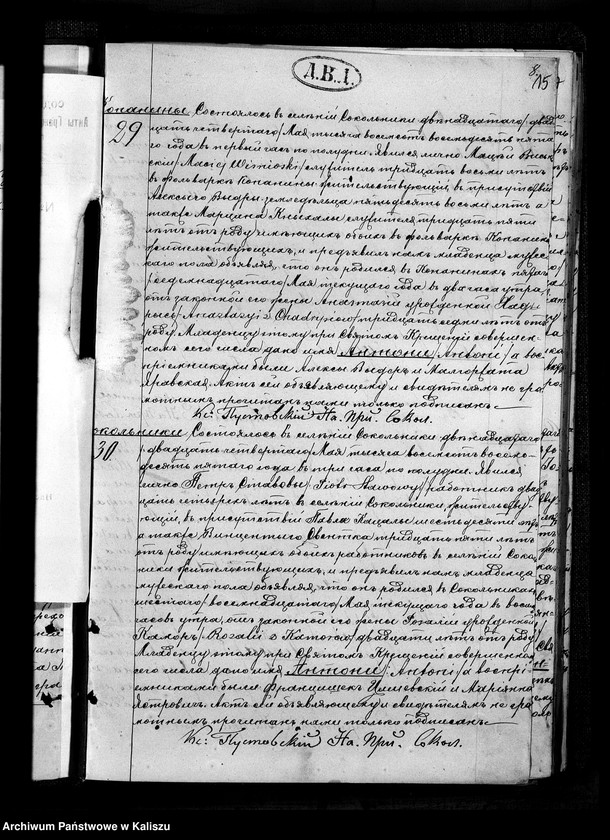 А.В.І.
8.
15
Копанины Состоялось въ селеніи Сокольники двѣнадцатаго/двад
29
цать четвертаго/Мая тысяча восемьсотъ восемьдесятъ пята
го года въ первый часъ по полудни. Явился лично Мацѣй
скій/Maciej Wisnioski/служитель тридцать восьми лѣтъ
въ фольваркѣ Копанины жительствующій, въ присутствіи
Алексѣго земледѣльца пятьдесятъ восьми лѣтъ а
также Марцина служителя тридцать пяти
лѣтъ отъ роду имѣющихъ обоихъ въ фольваркѣ Копанины
жительствующихъ, и предъявилъ намъ младенца мужес
каго пола объявляя, что онъ родился въ Копанинахъ пятаго
/семнадцатаго/Мая текущаго года въ два часа утра,
отъ законной его жены Анастазіи урожденной
/Anastazyi z /тридцать одинъ лѣтъ отъ
роду. Младенцу этому при Святомъ Крещеніи совершен
номъ сего числа дано имя Антоній/Antoni/а вос
пріемниками были Алексы и Малгоржата
Актъ сей объявляющему и свидѣтелямъ негра
мотнымъ прочитанъ нами только подписанъ
Кс: Пустовскій На. При. Сокол.
Сокольники Состоялось въ селеніи Сокольники двѣнадцатаго
30
/двадцать четвертаго/Мая тысяча восемьсотъ восемь
десятъ пятаго года въ три часа по полудни. Явился
лично Петръ Ставовы/Piotr Stawowy/работникъ двад
цать четырехъ лѣтъ въ селеніи Сокольники жительству
ющій, въ присутствіи Павла шестьдесяти
а также Винцентего тридцать пяти лѣтъ
отъ роду имѣющихъ обоихъ работниковъ въ селеніи Соколь
ники жительствующихъ, и предъявилъ намъ младенца
мужескаго пола объявляя, что онъ родился въ Сокольникахъ
шестаго/восемнадцатаго/Мая текущаго года въ восемь
часовъ утра, отъ законной его жены Розаліи урожденной
Каморъ/Rozalii z Kamorów/двадцати лѣтъ отъ роду
Младенцу этому при Святомъ Крещеніи совершенномъ
сего числа дано имя Антоній/Antoni/а воспрі
емниками были Францишекъ и Маріянна
Петровичъ. Актъ сей объявляющему и свидѣтелямъ негра
мотнымъ прочитанъ нами только подписанъ
Кс: Пустовскій На. При. Сокол.
Archiwum Państwowe w Kaliszu